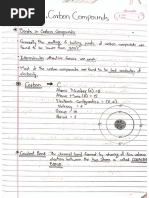 Carbon Compounds
Bonds in Carbon Compounds
Generally the melting & boiling points of carbon compounds are
found to be lower than
Intermolecular attractive forces are weak.
Most of the carbon compounds are found to be bad conductors of
electricity.
Carbon → C
Atomic Number (Z) = 6
Atomic Mass (A) = 12
Electronic Configuration = (2,4)
Valency = 4
No. of Protons = 6
No. of Neutrons = 6
Covalent Bond: The chemical bond formed by sharing of
electrons between the two atoms is called COVALENT
BOND.